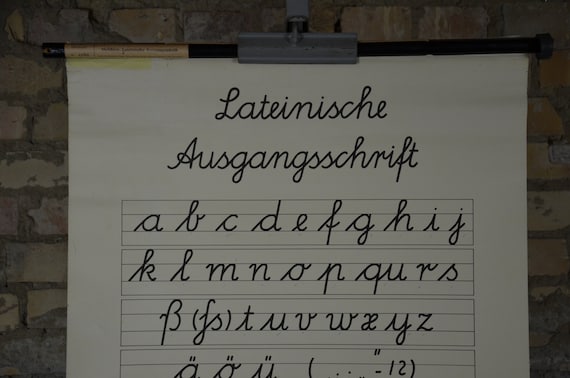 Lateinische
Ausgangsschrift
a b c d e f g h i j
k l m n o p qu r s
ß (ſs) t u v w x y z
ä ö ü (. , . . „ “ - 12)